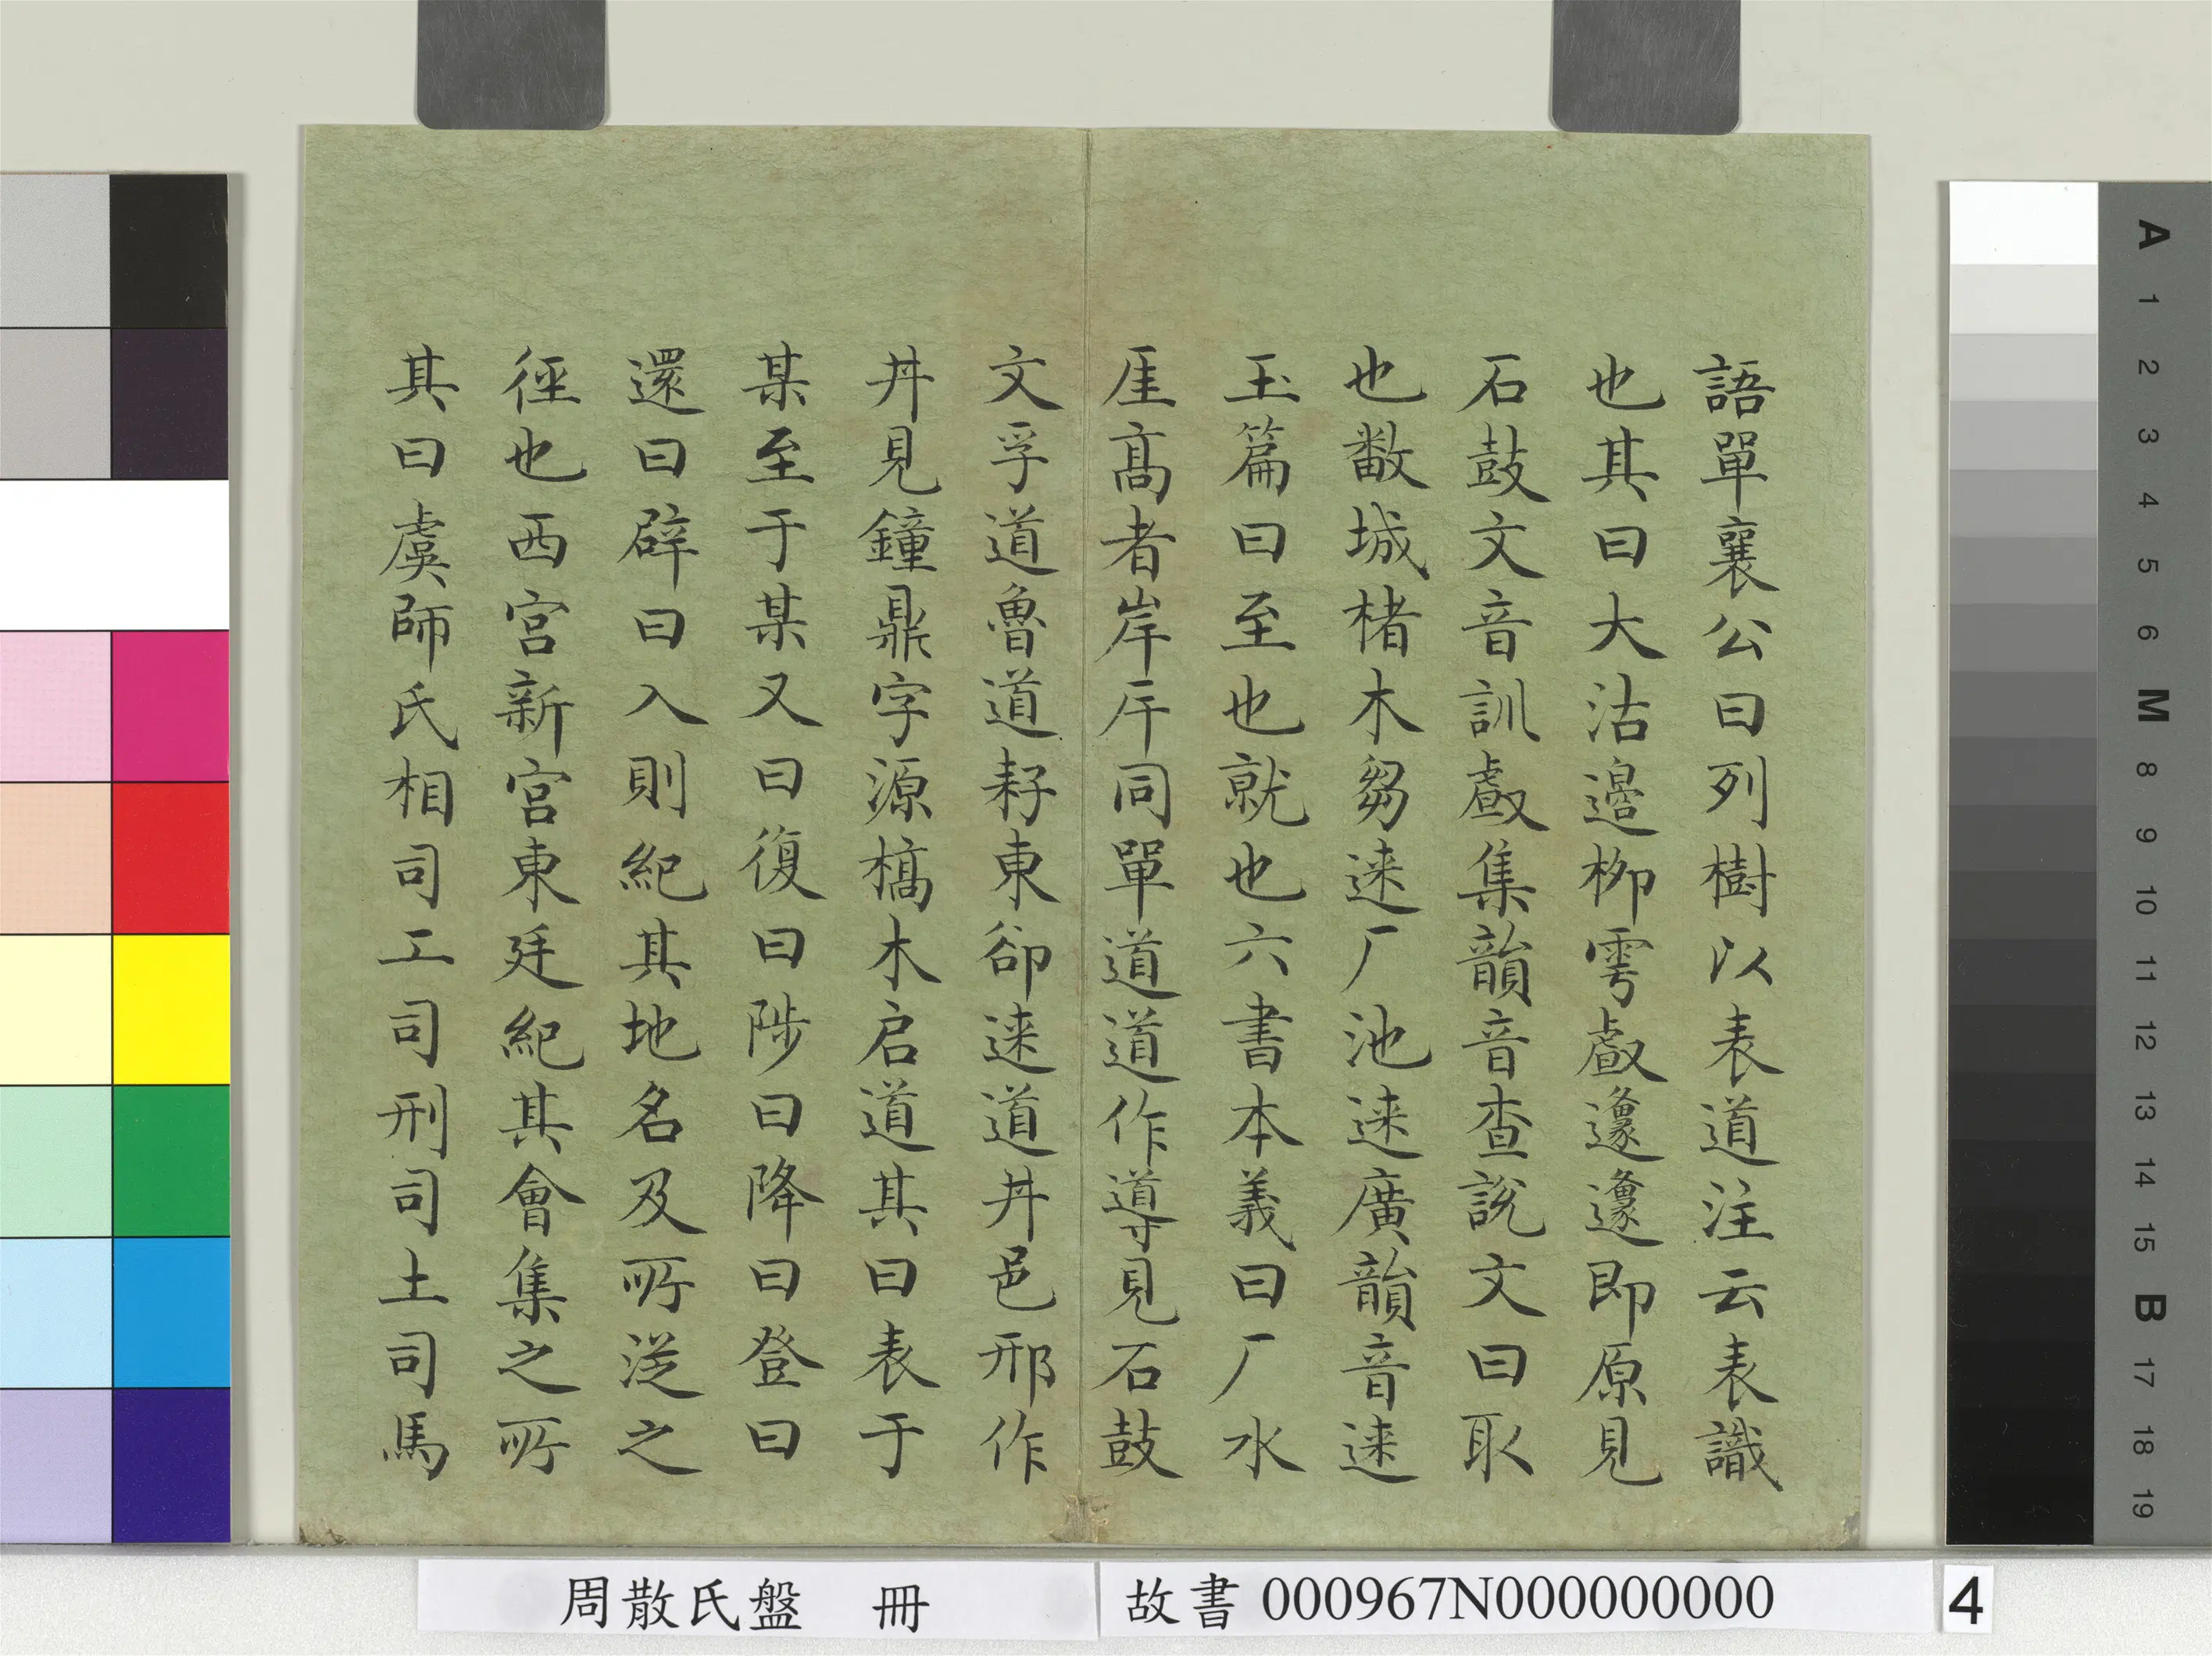 語單襄公曰列樹以表道注云表識
也其曰大沽邊柳雩䖒邍邍即原見
石鼓文音訓䖒集韻音查說文曰取
也㪔城楮木芻逨厂池逨廣韻音逨
玉篇曰至也就也六書本義曰厂水
厓高者岸厈同單道道作導見石鼓
文孚道魯道耔東卻逨道丼邑邢作
丼見鐘鼎字源槁木启道其曰表于
某至于某又曰復曰陟曰降曰登曰
還曰辟曰入則紀其地名及所從之
徑也西宮新宮東廷紀其會集之所
其曰虞師氏相司工司刑司土司馬
周散氏盤 冊
故書 000967N000000000
4
A 1 2 3 4 5 6 M 8 9 10 11 12 13 14 15 B 17 18 19